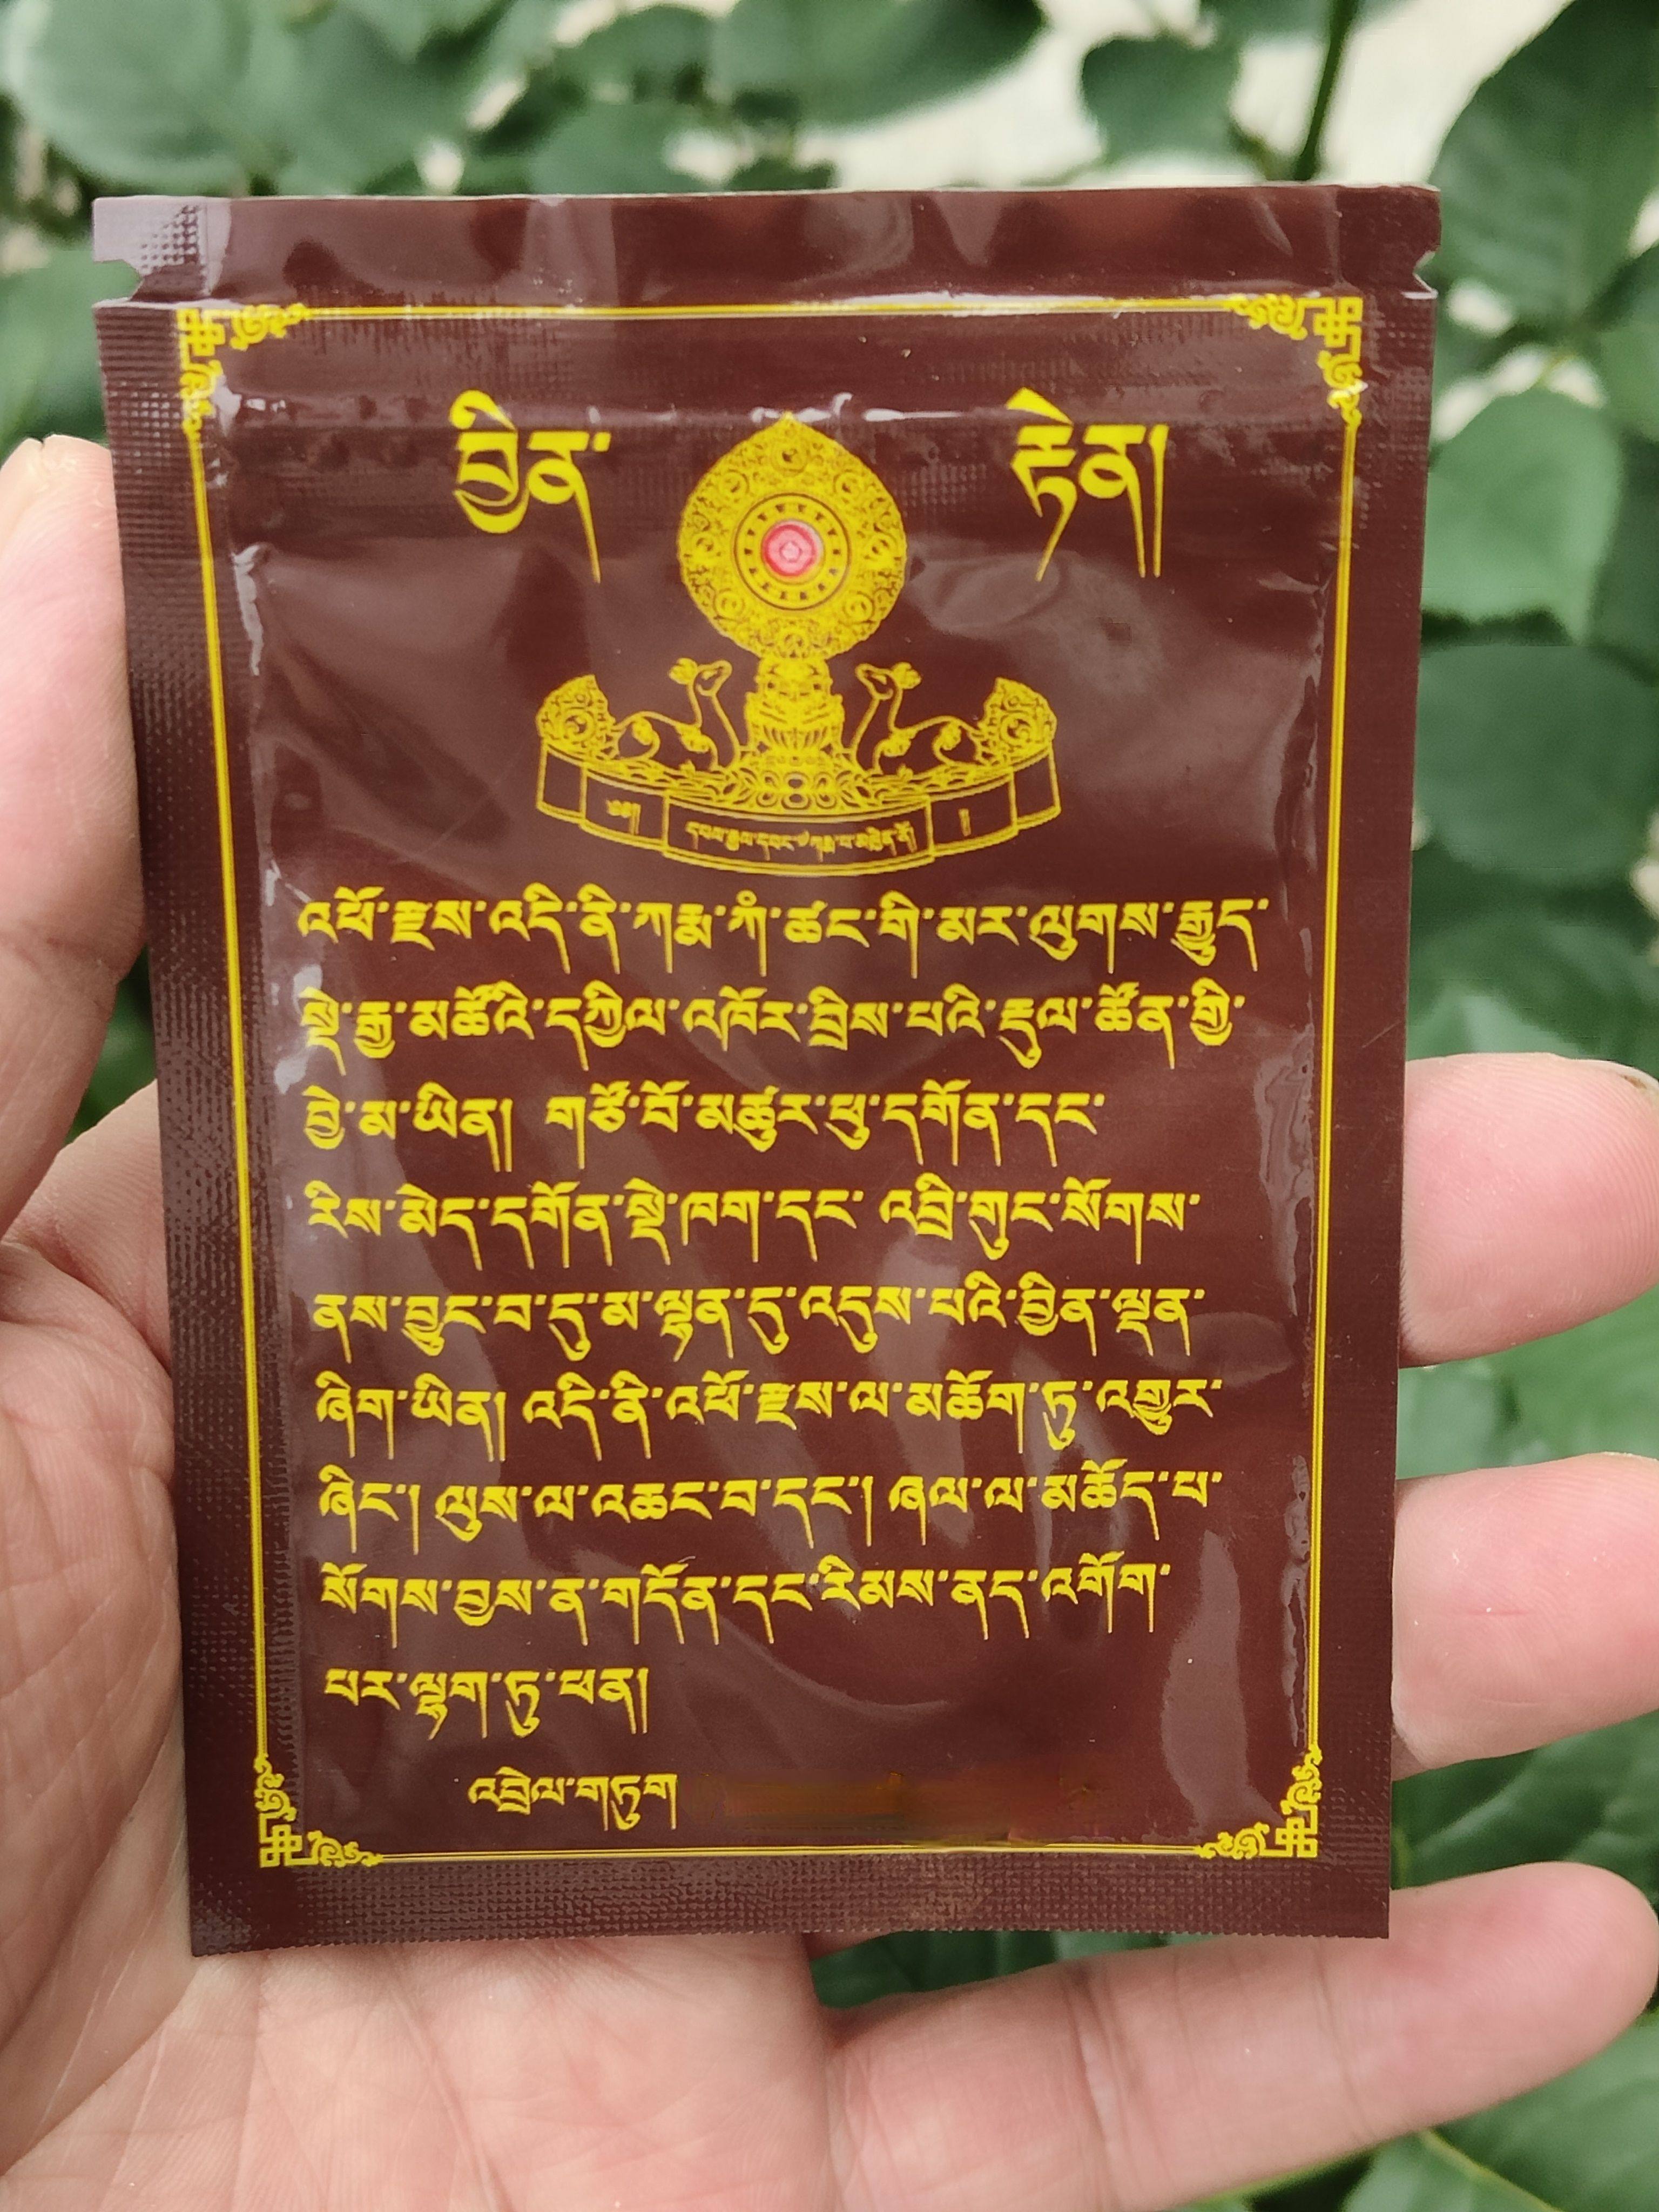 བྱིན་ རྟེན།
འཕོ་རྫས་འདི་ནི་ཀརྨ་ཀཾ་ཚང་གི་མར་ལུགས་རྒྱུད་
སྡེ་རྒྱ་མཚོའི་དཀྱིལ་འཁོར་བྲིས་པའི་རྡུལ་ཚོན་གྱི་
བྱེ་མ་ཡིན།། གཙོ་བོ་མཚུར་ཕུ་དགོན་དང་
རིས་མེད་དགོན་སྡེ་ཁག་དང་ འབྲི་གུང་སོགས་
ནས་བྱུང་བ་དུ་མ་ལྷན་དུ་འདུས་པའི་བྱིན་ལྡན་
ཞིག་ཡིན། འདི་ནི་འཕོ་རྫས་ལ་མཆོག་ཏུ་འགྱུར་
ཞིང་། ལུས་ལ་འཆང་བ་དང་། ཞལ་ལ་མཆོད་པ་
སོགས་བྱས་ན་གདོན་དང་རིམས་ནད་འགོག་
པར་ལྷག་ཏུ་ཕན།
འབྲེལ་གཏུག